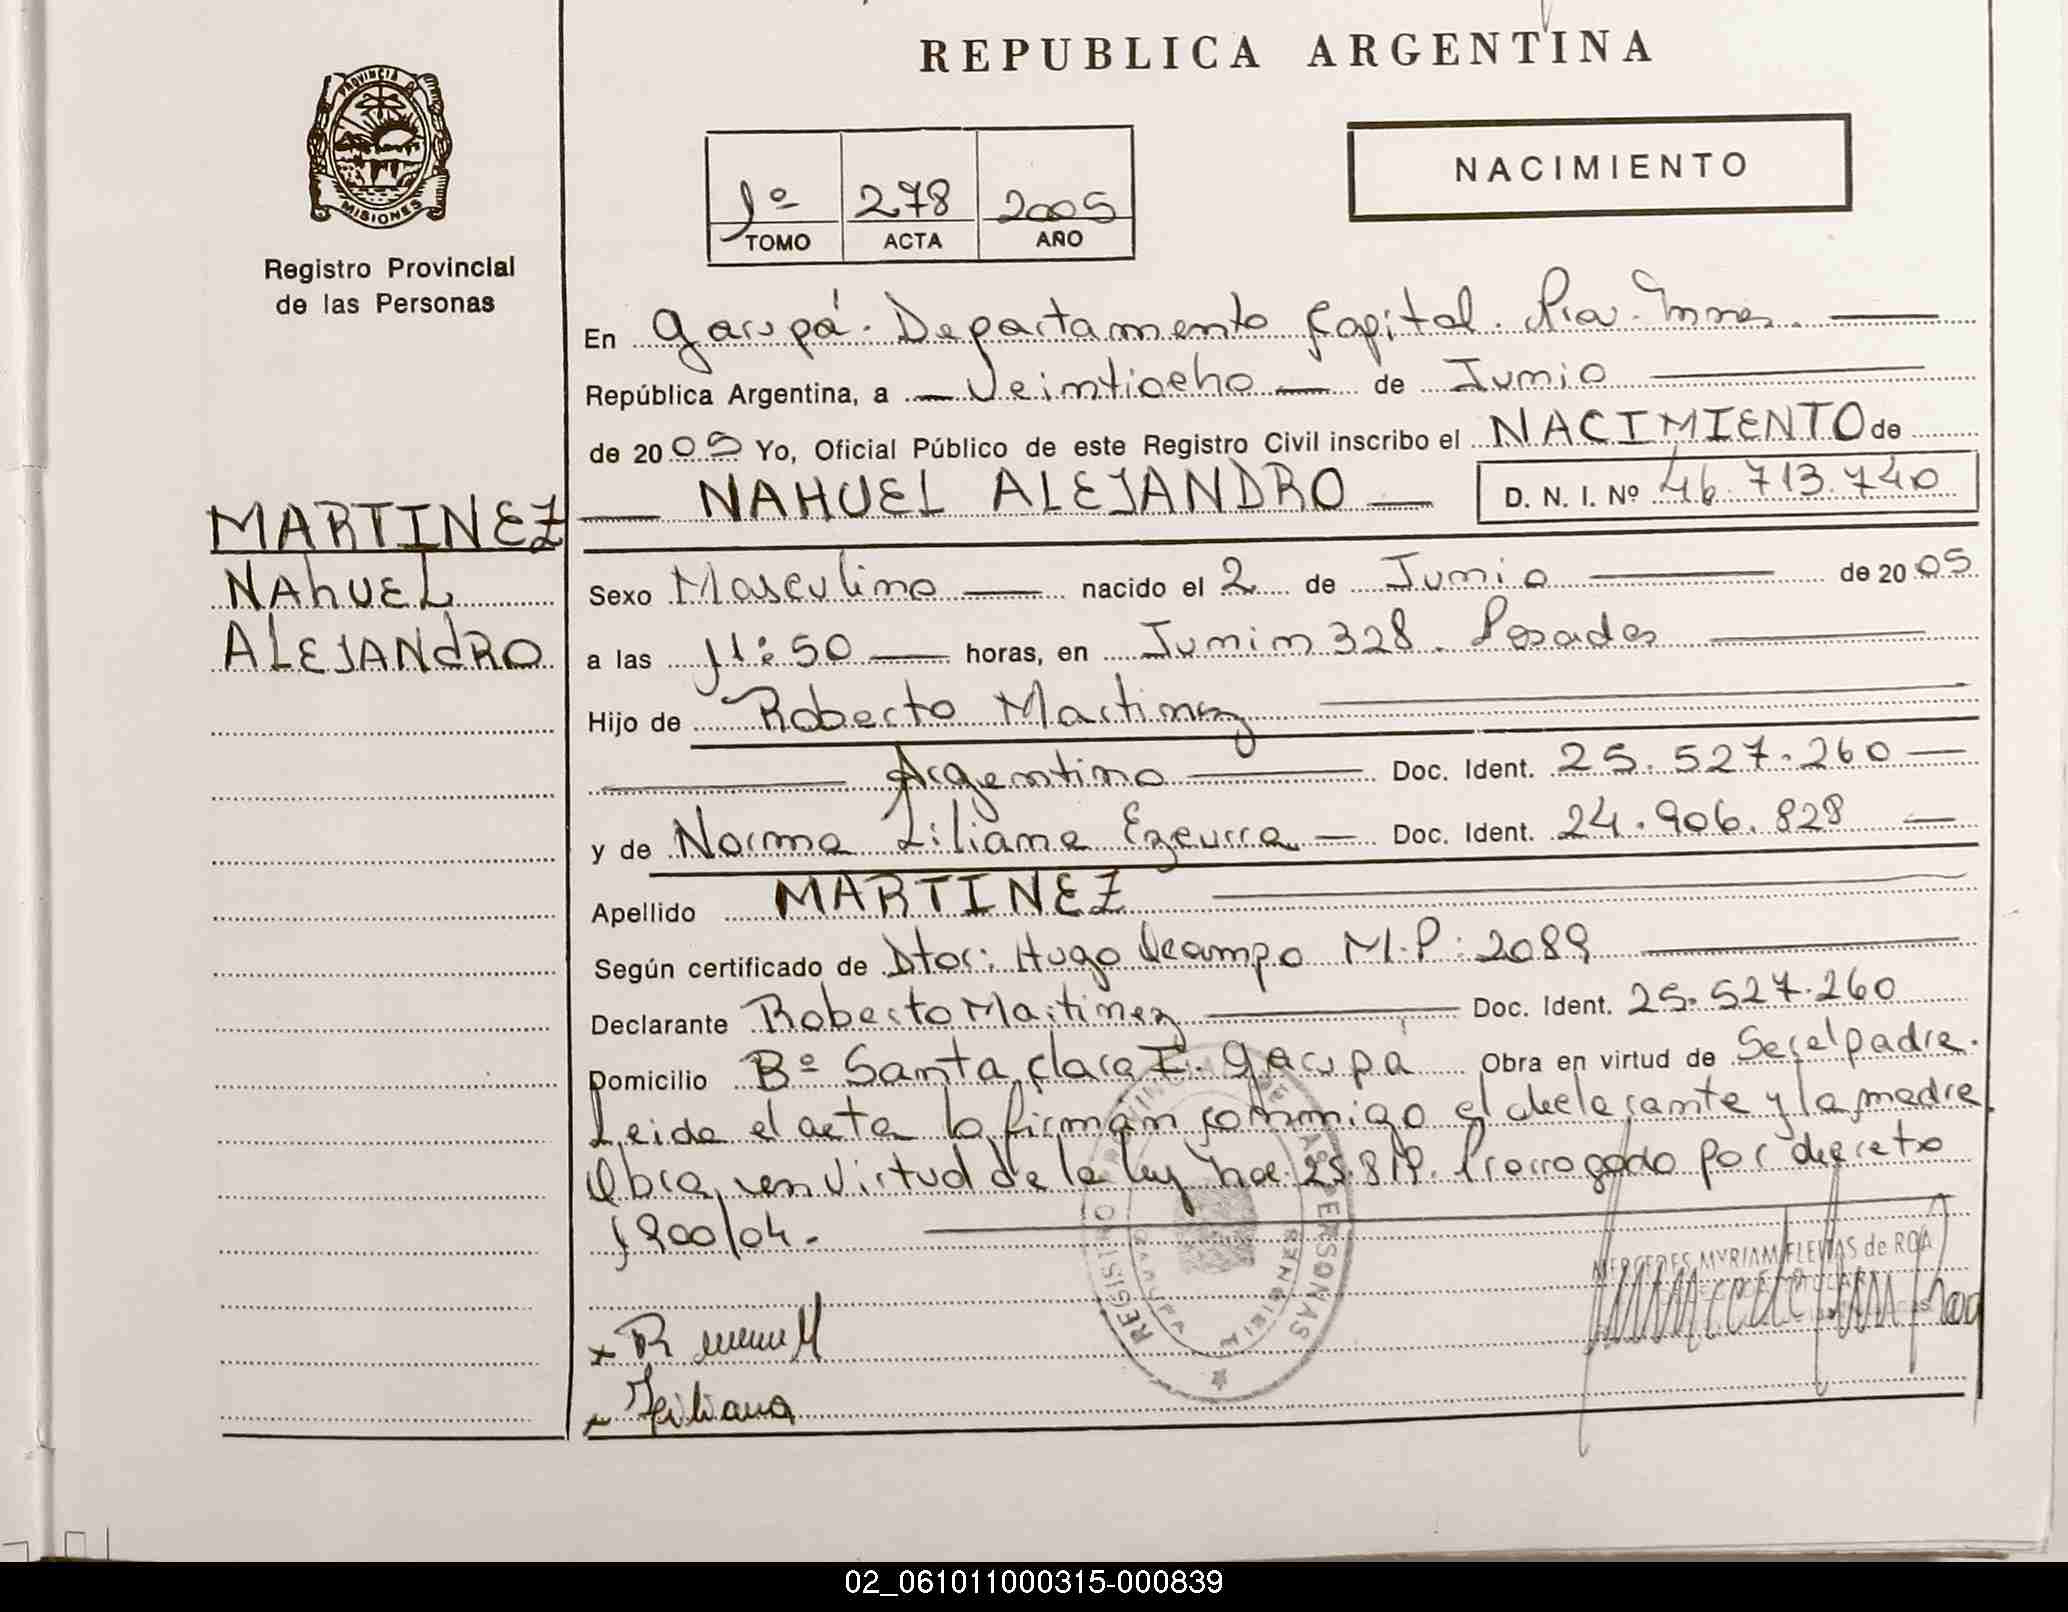 REPUBLICA ARGENTINA
PROVINCIA DE
MISIONES
Registro Provincial
de las Personas
1º 278 2005
TOMO ACTA AÑO
NACIMIENTO
En Garupá. Departamento Capital. Pia. Mnes.
República Argentina, a Veintiocho de Junio
de 2005 Yo, Oficial Público de este Registro Civil inscribo el NACIMIENTO de
NAHUEL ALEJANDRO D. N. I. Nº 46.713.740
MARTINEZ
NAhUEL
ALEJANdRO
Sexo Masculino nacido el 2 de Junio de 2005
a las 11:50 horas, en Junin 328. Posadas
Hijo de Roberto Martinez
Argentino Doc. Ident. 25.527.260
y de Norma Liliana Ezeurra Doc. Ident. 24.906.828
Apellido MARTINEZ
Según certificado de Dtor: Hugo Ocampo M.P: 2089
Declarante Roberto Martinez Doc. Ident. 25.527.260
Domicilio Bº Santa Clara I. Garupá Obra en virtud de Ser el padre.
Leida el acta la firman conmigo el declarante y la madre.
Obra en Virtud de la ley nac. 25.819. Prorrogado por decreto
1900/04.
REGISTRO PERSONAS
GARUPA
MERCEDES MYRIAM FLEITAS de ROA
Liliana
02_061011000315-000839